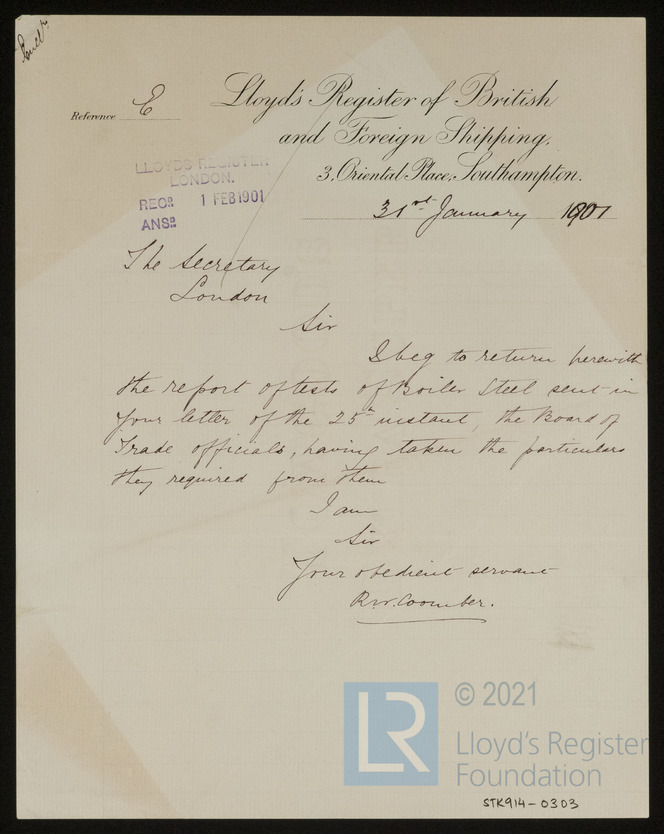 Encl^r
Reference E
Lloyd's Register of British
and Foreign Shipping,
3, Oriental Place, Southampton.
LLOYDS REGISTER
LONDON.
REC^D 1 FEB 1901
ANS^D
31st January 1901
The Secretary
London
Sir
I beg to return herewith
the report of tests of Boiler Steel sent in
your letter of the 25th instant, the Board of
Trade officials, having taken the particulars
they required from them
I am
Sir
Your obedient servant
R.W. Coomber.
LR
© 2021
Lloyd's Register
Foundation
STK914-0303